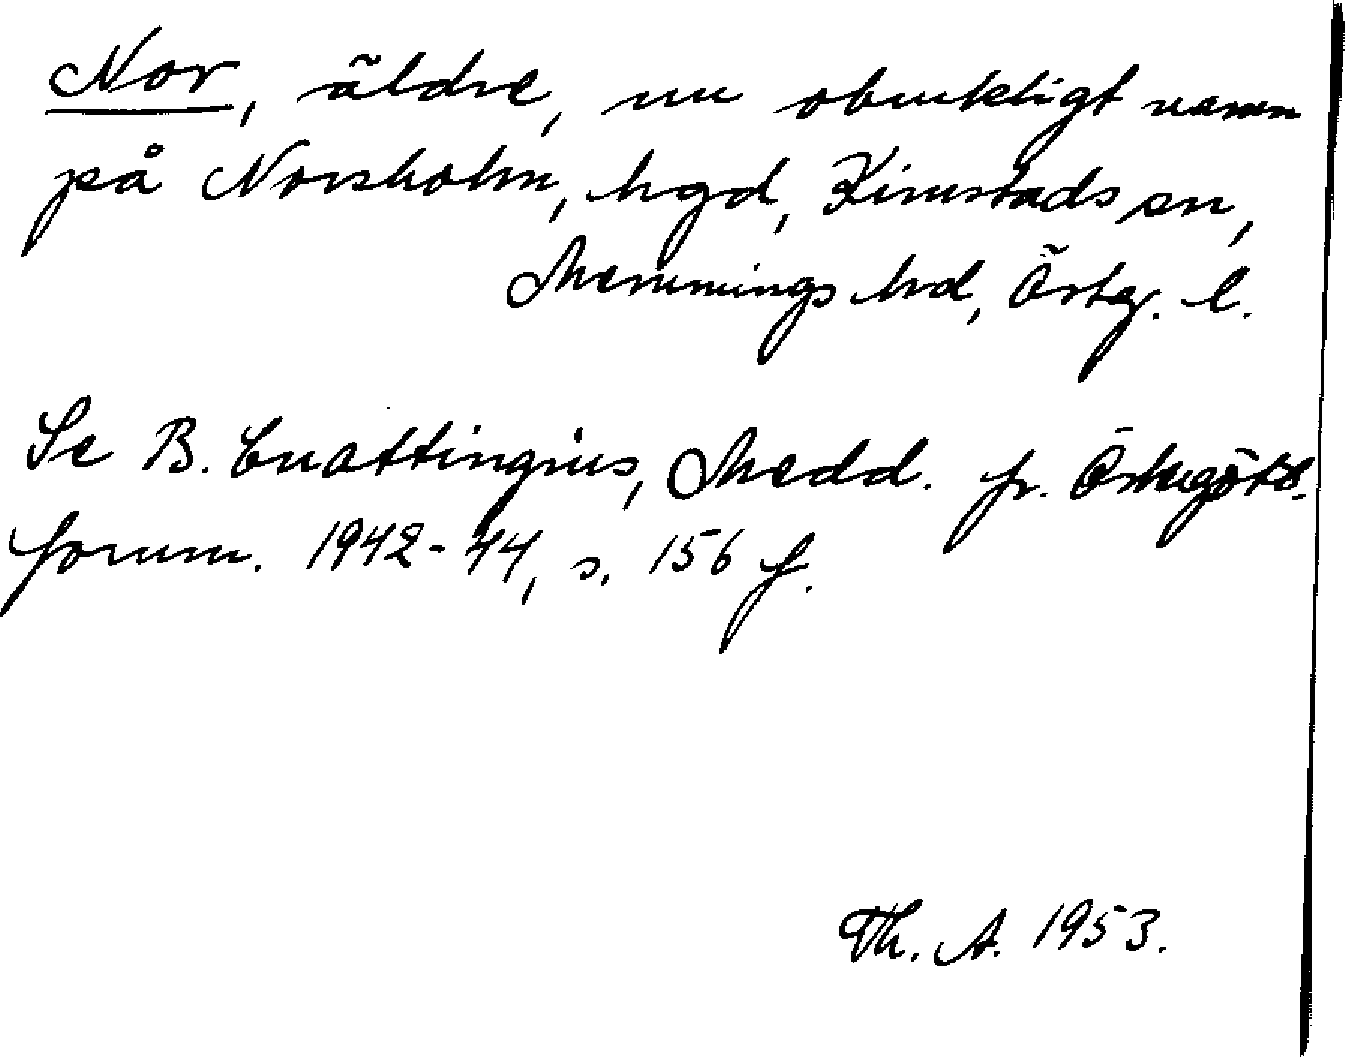 Nor, äldre, nu obrukligt namn
på Norsholm, hgd, Kimstads sn,
Memmings hd, Östg. l.
Se B. Cnattingius, Medd. fr. Östergötl.
fornm. 1942-44, s. 156 f.
Th. A. 1953.